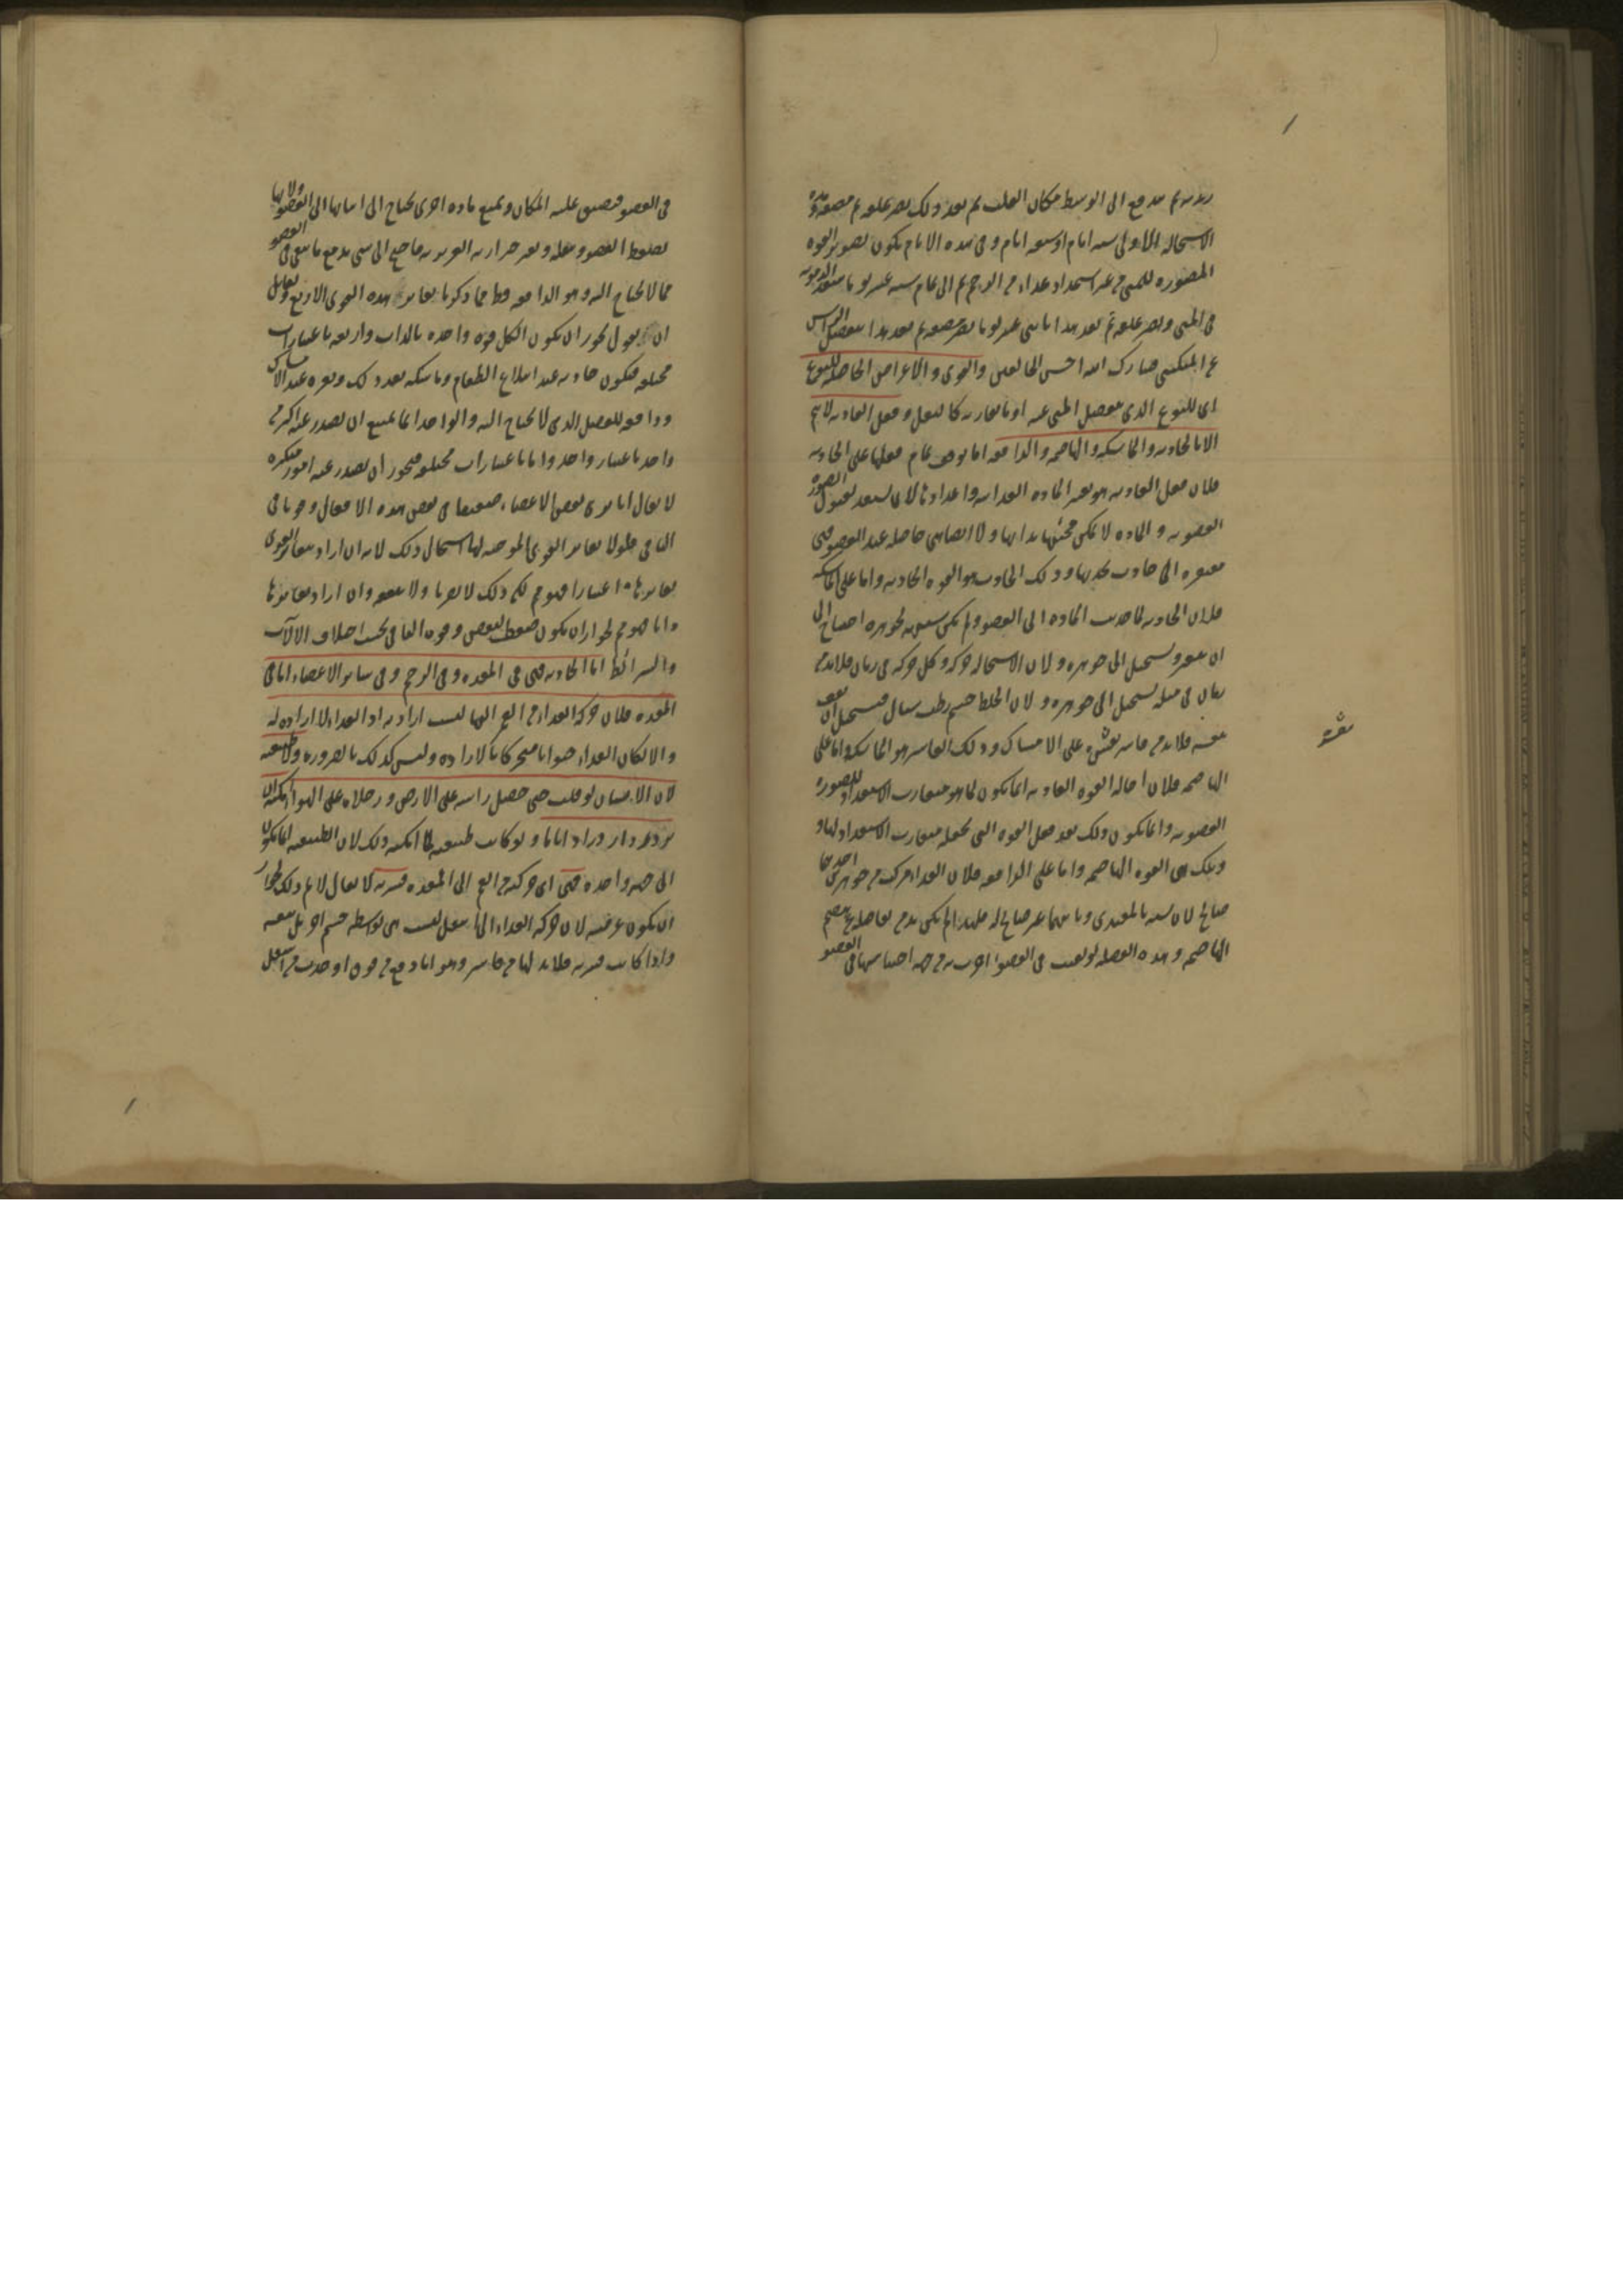 ثم يندفع الى الوسط مكان القلب ثم بعد ذلك يصير علقة ثم مضغة ومدة
الاستحالة الاولى ستة ايام او سبعة ايام وفي هذه الايام يكون تصوير القوة
المصورة للمنى من غير استمداد غذاء من الرحم ثم الى تمام ستة عشر يوما تنفذ الدموية
في المنى ويصير علقة ثم بعد هذا باثنى عشر يوما يصير مضغة ثم بعد هذا ينفصل الراس
عن المنكبين فتبارك الله احسن الخالقين والقوى والاعراض الحاصلة للنوع
اى للنوع الذى ينفصل المنى عنه او ما يقاربه كالبغل وفعل الغاذية لا يتم
الا بالجاذبة والماسكة والهاضمة والدافعة اما توقف تمام فعلها على الجاذبة
فلان فعل الغاذية هو تغيير المادة الغذائية واعدادها لان تستعد لقبول الصورة
العضوية والمادة لا يمكن مجيئها بذاتها ولا ايضا هى حاصلة عند العضو فهى
مفتقرة الى جاذب يجذبها وذلك الجاذب هو القوة الجاذبة واما على الماسكة
فلان الجاذبة لما جذبت المادة الى العضو ولم يكن شبيهة لجوهره احتاج الى
ان يتغير ويستحيل الى جوهره ولان الاستحالة حركة وكل حركة في زمان فلا بد من
زمان في مثله يستحيل الى جوهره ولان الخلط جسم رطب سيال فيستحيل ان يقف
بنفسه فلا بد من قاسر يقسره على الامساك وذلك القاسر هو الماسكة واما على
الهاضمة فلان احالة القوة الغاذية انما يكون لما هو متقارب الاستعداد للصورة
العضوية وانما يكون ذلك بعد فعل القوة التى تجعله متقارب الاستعداد لها و
وتلك هى القوة الهاضمة واما على الدافعة فلان الغذاء مركب من جوهرين احدهما
صالح لان يشبه بالمغتذى وثانيهما غير صالح له فلهذا لم يكن بد من تفاصله عن هضم
الهاضمة وهذه الفضلة لو بقيت في العضو اضرت به من جهة احتباسها في العضو
يقسره
في العضو فيضيق عليه المكان ويمنع مادة اخرى يحتاج الى اتيانها الى العضو ولانها
يضغط العضو ويثقله ويغير حرارته الغريزية فاحتيج الى شئ يدفع ما يبقى في العضو
مما لا يحتاج اليه وهو الدافعة فظهر مما ذكرنا تغاير هذه القوى الاربع ولقائل
ان يقول يجوز ان يكون الكل قوة واحدة بالذات واربعة باعتبارات
مختلفة فيكون جاذبة عند ابتلاع الطعام وماسكة بعد ذلك ومغيرة عند الامساك
ودافعة للفضل الذى لا يحتاج اليه والواحد انما يمتنع ان يصدر عنه اكثر من
واحد باعتبار واحد واما باعتبارات مختلفة فيجوز ان يصدر عنه امور متكثرة
لا يقال انا نرى بعض الاعضاء ضعيفا في بعض هذه الافعال وقويا في
الباقى فلولا تغاير القوى الموجبة لها استحال ذلك لانه ان اراد بتغاير القوى
تغايرها اعتبارا فهو مسلم لكن ذلك لا يضرنا ولا ينفعه وان اراد تغايرها
ذاتا فهو مم لجواز ان يكون ضعف البعض وقوة الباقى بحسب اختلاف الالات
والشرائط اما الجاذبة فهى في المعدة وفي الرحم وفي سائر الاعضاء اما في
المعدة فلان حركة الغذاء من الفم اليها ليست ارادية اذ الغذاء لا ارادة له
والا لكان الغذاء حيوانا متحركا بالارادة وليس كذلك بالضرورة ولا طبيعية
لان الانسان لو قلب حتى حصل راسه على الارض ورجلاه على الهواء امكنه ان
يزدرد ازدرادا تاما ولو كانت طبيعية لما امكنه ذلك لان الطبيعية انما يكون
الى جهة واحدة فهى اى حركته من الفم الى المعدة قسرية لا يقال لا نم ذلك لجواز
ان يكون عرضية لان حركة الغذاء الى اسفل ليست هى بواسطة جسم آخر بل بنفسه
واذا كانت قسرية فلا بد لها من قاسر وهو اما دفع من فوق او جذب من اسفل